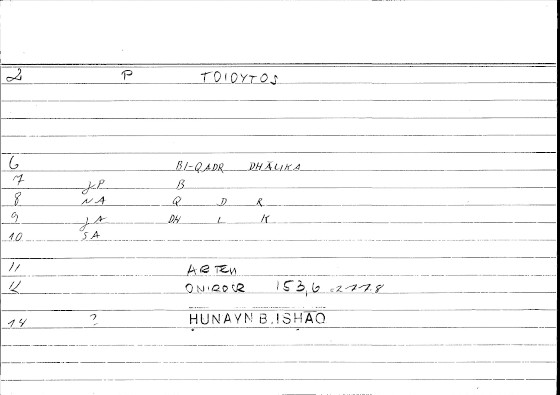 2 P TOIOYTOS
6 BI-QADR DHĀLIKA
7 JP B
8 NA Q D R
9 JA DH L K
10 SA
11 ARTEM
12 ONIROCR 153,6 = 277.8
14 ? ḤUNAYN B. ISḤĀQ